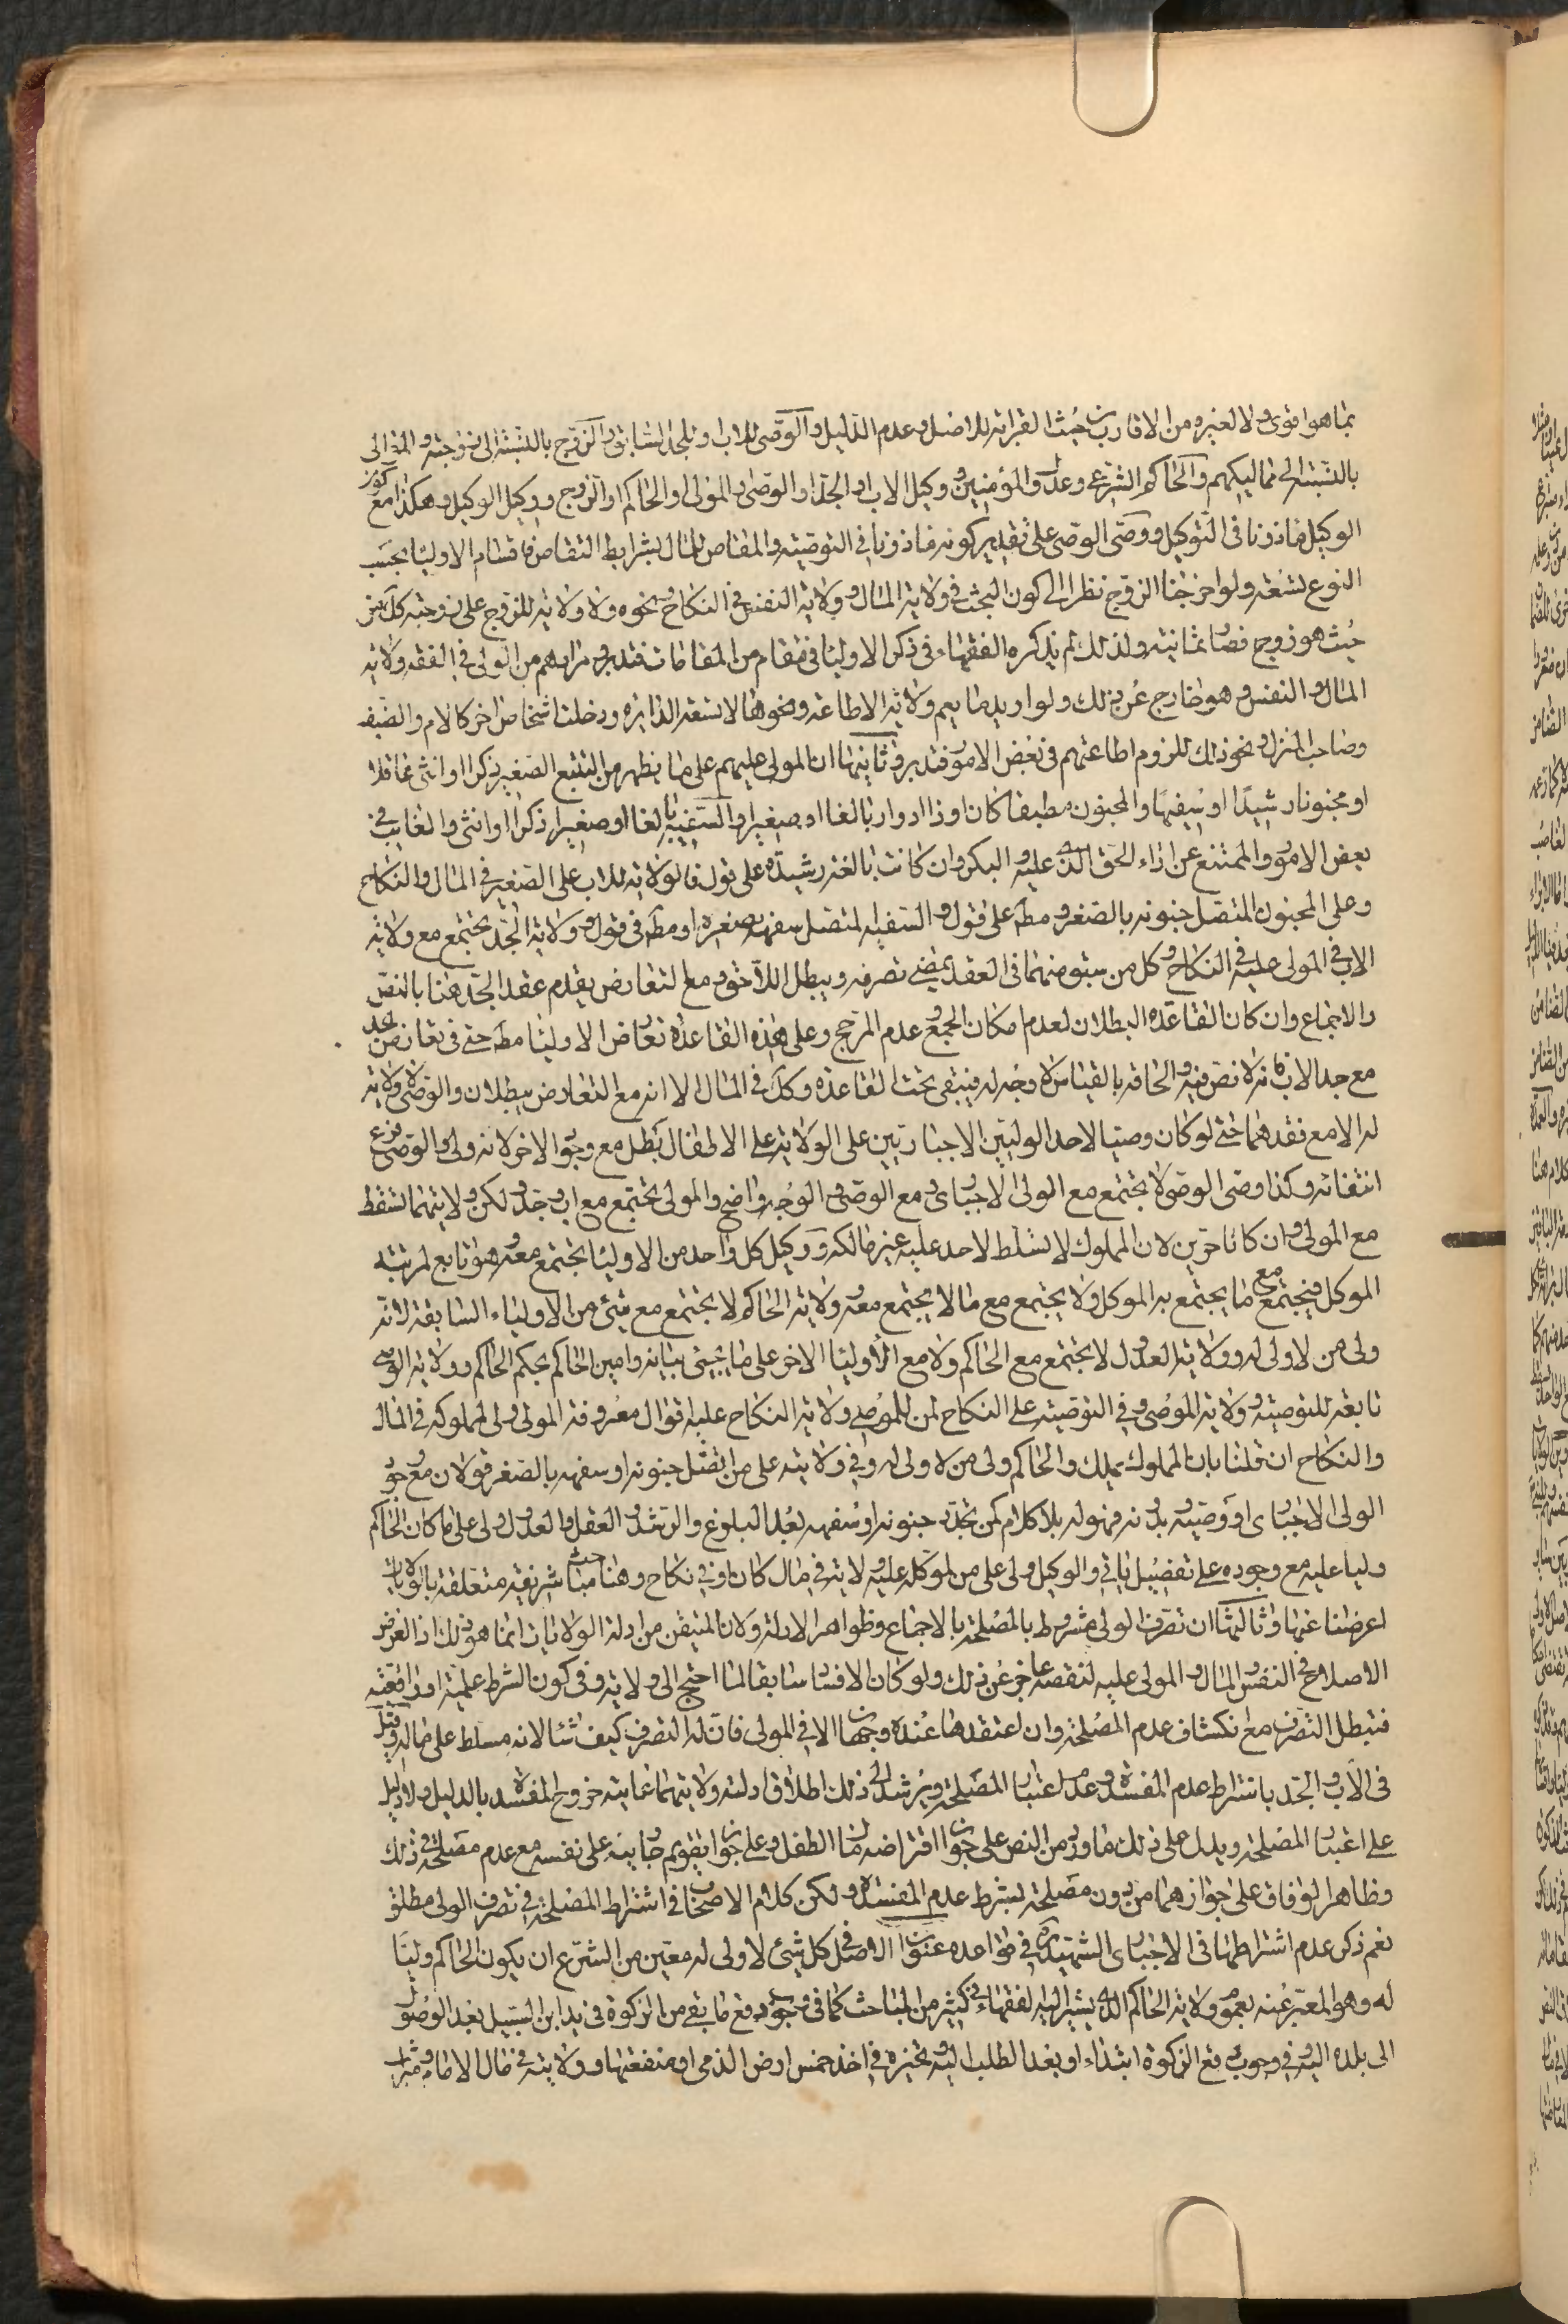 بما هو اقوى ولا لغيره من الاقارب حيث القرابة للاصل وعدم الدليل والوصى للاب او للجد السابق والزوج بالنسبة الى زوجته والموالى
بالنسبة الى مماليكهم والحاكم الشرعى وعدول المؤمنين ووكيل الاب او الجد او الوصى او المولى او الحاكم او الزوج ووكيل الوكيل وهكذا مع كون
الوكيل ماذونا فى التوكيل ووصى الوصى على تقدير كونه ماذونا فى التوصية والمقاص للمال بشرايط التقاص فاقسام الاوليا بحسب
النوع تسعة ولو اخرجنا الزوج نظرا الى كون البحث فى ولاية المال وولاية النفس فى النكاح ونحوه ولا ولاية للزوج على زوجته كك من
حيث هو زوج فصار ثمانية ولذلك لم يذكره الفقهاء فى ذكر الاوليا فى مقام من المقامات فتدبر ومرادهم من الولى فى الفقه ولاية
المال والنفس وهو خارج عن ذلك ولو اريد ما يعم ولاية الاطاعة ونحوها لاتسعة الدايرة ودخلت اشخاص اخر كالام والضيف
وصاحب المنزل ونحو ذلك للزوم اطاعتهم فى بعض الامور فتدبر وثانيها ان المولى عليهم على ما يظهر من التتبع الصغير ذكرا او انثى عاقلا
او مجنونا رشيدا او سفيها والمجنون مطبقا كان او ذا ادوار بالغا او صغيرا والسفيه بالغا او صغيرا ذكرا او انثى والغايب فى
بعض الامور والممتنع عن اداء الحق الذى عليه والبكر وان كانت بالغة رشيدة على قول فالولاية للاب على الصغير فى المال والنكاح
وعلى المجنون المتصل جنونه بالصغر ومط على قول والسفيه المتصل سفهه بصغره او مط فى قول وولاية الجد تجتمع مع ولاية
الاب فى المولى عليه فى النكاح وكل من سبق منهما فى العقد يمضى تصرفه ويبطل اللاحق ومع التعارض يقدم عقد الجد هنا بالنص
والاجماع وان كان القاعدة البطلان لعدم امكان الجمع وعدم المرجح وعلى هذه القاعدة تعارض الاوليا مط حتى فى تعارض الجد
مع جد الاب فانه لا نص فيه والحاقه بالقياس لا وجه له فيبقى تحت القاعدة وكك فى المال الا انه مع التعارض يبطلان والوصى لا ولاية
له الا مع فقدهما حتى لو كان وصيا لاحد الوليين الاجباريين على الولاية على الاطفال بطل مع وجود الاخر لانه ولى والوصى فرع
انتفائه وكذا وصى الوصى لا يجتمع مع المولى الاجبارى ومع الوصى والوجه واضح والمولى يجتمع مع اب وجد ولكن ولايتهما تسقط
مع المولى وان كانا حرين لان المملوك لا تسلط لاحد عليه غير مالكه ووكيل كل واحد من الاوليا يجتمع معه وهو تابع لمرتبة
الموكل فيجتمع مع ما يجتمع به الموكل ولا يجتمع مع ما لا يجتمع معه وولاية الحاكم لا يجتمع مع شئ من الاولياء السابقة لانه
ولى من لا ولى له وولاية العدول لا يجتمع مع الحاكم ولا مع الاوليا الاخر على ما يجيئ بيانه وامين الحاكم بحكم الحاكم وولاية الوصى
تابعة للتوصية وولاية الموصى وفى التوصية على النكاح لمن للموصى ولاية النكاح عليه اقوال معروفة المولى ولى لمملوكه فى المال
والنكاح ان قلنا بان المملوك يملك والحاكم ولى من لا ولى له وفى ولايته على من اتصل جنونه او سفهه بالصغر قولان مع وجود
الولى الاجبارى او وصيه وبدونه فهو له بلا كلام كمن تجدد جنونه او سفهه بعد البلوغ والرشد والعقل والعدول ولى على ما كان الحاكم
وليا عليه مع وجوده على تفصيل ياتى والوكيل ولى على من لموكله عليه ولاية فى مال كان او فى نكاح وهنا مباحث شريفة متعلقة بالولايات
اعرضنا عنها وثالثها ان تصرف الولى مشروط بالمصلحة بالاجماع وظواهر الادلة ولان المتيقن من ادلة الولايات انما هو ذلك اذ الغرض
الاصلاح فى النفس والمال والمولى عليه لنقصه عاجز عن ذلك ولو كان الافساد سابقا لما احتيج الى ولاية وفى كون الشرط علمية او واقعية
فتبطل التصرف مع انكشاف عدم المصلحة وان اعتقدها عنده وجهان الا فى المولى فان له التصرف كيف شا لانه مسلط على ماله وقيل
فى الاب والجد باشتراط عدم المفسدة وعدم اعتبار المصلحة ويرشد الى ذلك اطلاق ادلة ولايتهما غايته خروج المفسد بالدليل ولا دليل
على اعتبار المصلحة ويدل على ذلك ما ورد من النص على جواز اقتراضه مال الطفل وعلى جواز تقويم جاريته على نفسه مع عدم مصلحة فى ذلك
وظاهر الوفاق على جوازهما من دون مصلحة بشرط عدم المفسدة ولكن كلام الاصحاب فى اشتراط المصلحة فى تصرف الولى مطلق
نعم ذكر عدم اشتراطها فى الاجبارى الشهيد ره فى قواعده عنوان الاصل فى كل شئ لا ولى له معين من الشرع ان يكون الحاكم وليا
له وهو المعبر عنه بعموم ولاية الحاكم الذى يشير اليه الفقهاء فى كثير من المباحث كما فى وجوب دفع ما بقى من الزكوة فى يد ابن السبيل بعد الوصول
الى بلده اليه وفى وجوب دفع الزكوة ابتداء او بعد الطلب اليه وتخيره فى اخذ خمس ارض الذمى او منفعتها وولايته فى مال الامام وميراث